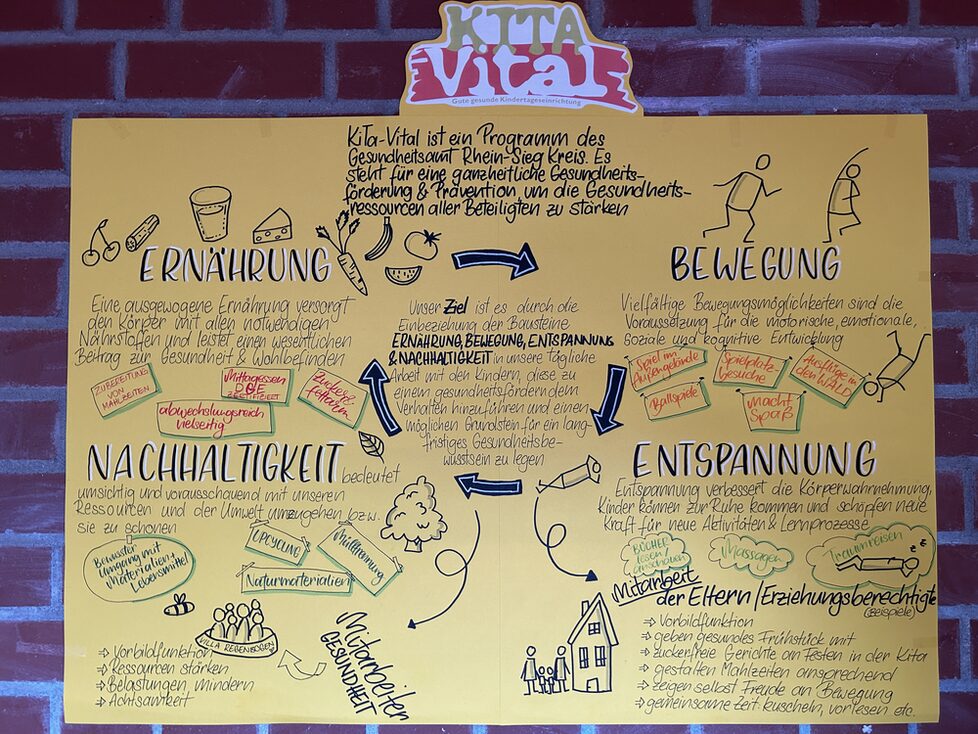 KITA
Vital
Gute gesunde Kindertageseinrichtung
KiTa-Vital ist ein Programm des
Gesundheitsamt Rhein-Sieg Kreis. Es
steht für eine ganzheitliche Gesundheits-
förderung & Prävention, um die Gesundheits-
ressourcen aller Beteiligten zu stärken
ERNÄHRUNG
Eine ausgewogene Ernährung versorgt
den Körper mit allen notwendigen
Nährstoffen und leistet einen wesentlichen
Beitrag zur Gesundheit & Wohlbefinden
ZUBEREITUNG
VON
MAHLZEITEN
Mittagessen
DGE
ZERTIFIZIERT
Zucker&
Fettarm
abwechslungsreich
vielseitig
Unser Ziel ist es durch die
Einbeziehung der Bausteine
ERNÄHRUNG, BEWEGUNG, ENTSPANNUNG
& NACHHALTIGKEIT in unsere tägliche
Arbeit mit den Kindern, diese zu
einem gesundheitsfördernden
Verhalten hinzuführen und einen
möglichen Grundstein für ein lang-
fristiges Gesundheitsbe-
wusstsein zu legen
BEWEGUNG
Vielfältige Bewegungsmöglichkeiten sind die
Voraussetzung für die motorische, emotionale,
soziale und kognitive Entwicklung
Spiel im
Außengelände
Spielplatz-
besuche
Ausflüge in
den WALD
Ballspiele
macht
Spaß
NACHHALTIGKEIT bedeutet
umsichtig und vorausschauend mit unseren
Ressourcen und der Umwelt umzugehen bzw.
sie zu schonen
Bewusster
Umgang mit
Materialien+
Lebensmittel
UPCYCLING
Mülltrennung
Naturmaterialien
ENTSPANNUNG
Entspannung verbessert die Körperwahrnehmung,
Kinder können zur Ruhe kommen und schöpfen neue
Kraft für neue Aktivitäten & Lernprozesse
BÜCHER
lesen/
anschauen
Massagen
Traumreisen
z z
VILLA REGENBOGEN
Mitarbeiten
GESUNDHEIT
⇒ Vorbildfunktion
⇒ Ressourcen stärken
⇒ Belastungen mindern
⇒ Achtsamkeit
Mitarbeit
der Eltern/Erziehungsberechtigte
(Beispiele)
⇒ Vorbildfunktion
⇒ geben gesundes Frühstück mit
⇒ zuckerfreie Gerichte an Festen in der Kita
⇒ gestalten Mahlzeiten ansprechend
⇒ zeigen selbst Freude an Bewegung
⇒ gemeinsame Zeit: kuscheln, vorlesen etc.